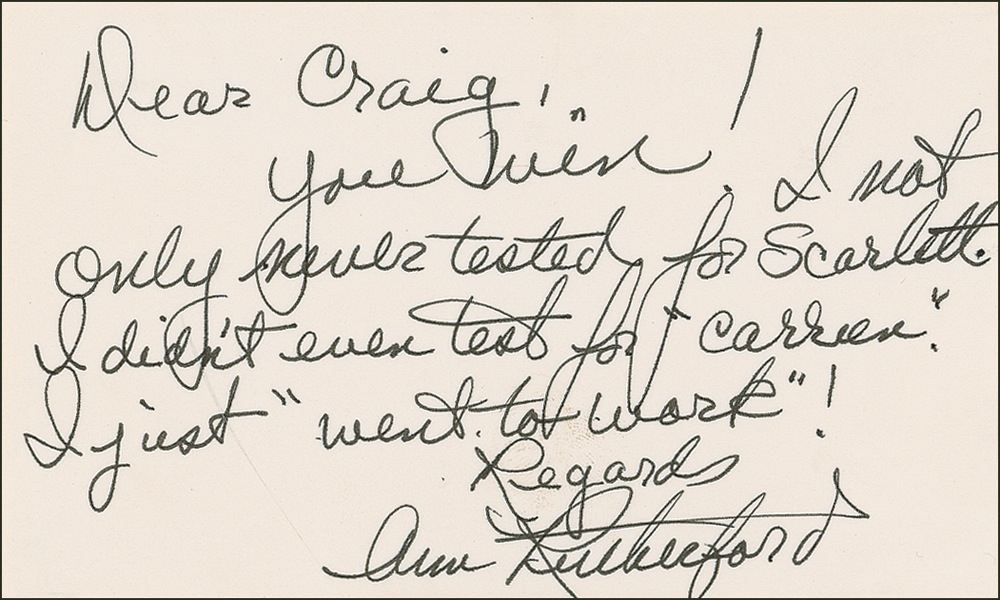 Dear Craig,
You "win"! I not
only never tested for Scarlett.
I didn't even test for "Carreen".
I just "went to work"!
Regards
Ann Rutherford